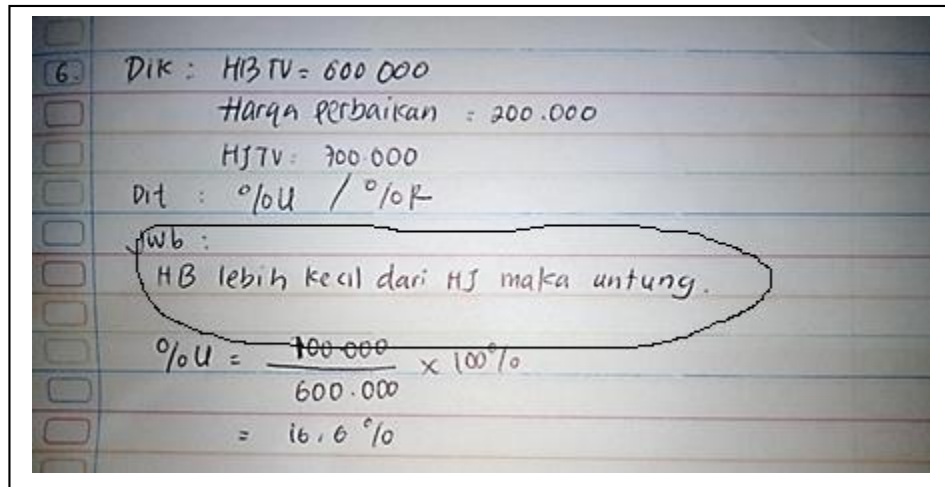 6. Dik : HB TV = 600 000
Harga perbaikan : 200.000
HJ TV : 700.000
Dit : %U / %R
Jwb :
HB lebih kecil dari HJ maka untung.
%U = 100.000 × 100%
600.000
= 16,6 %